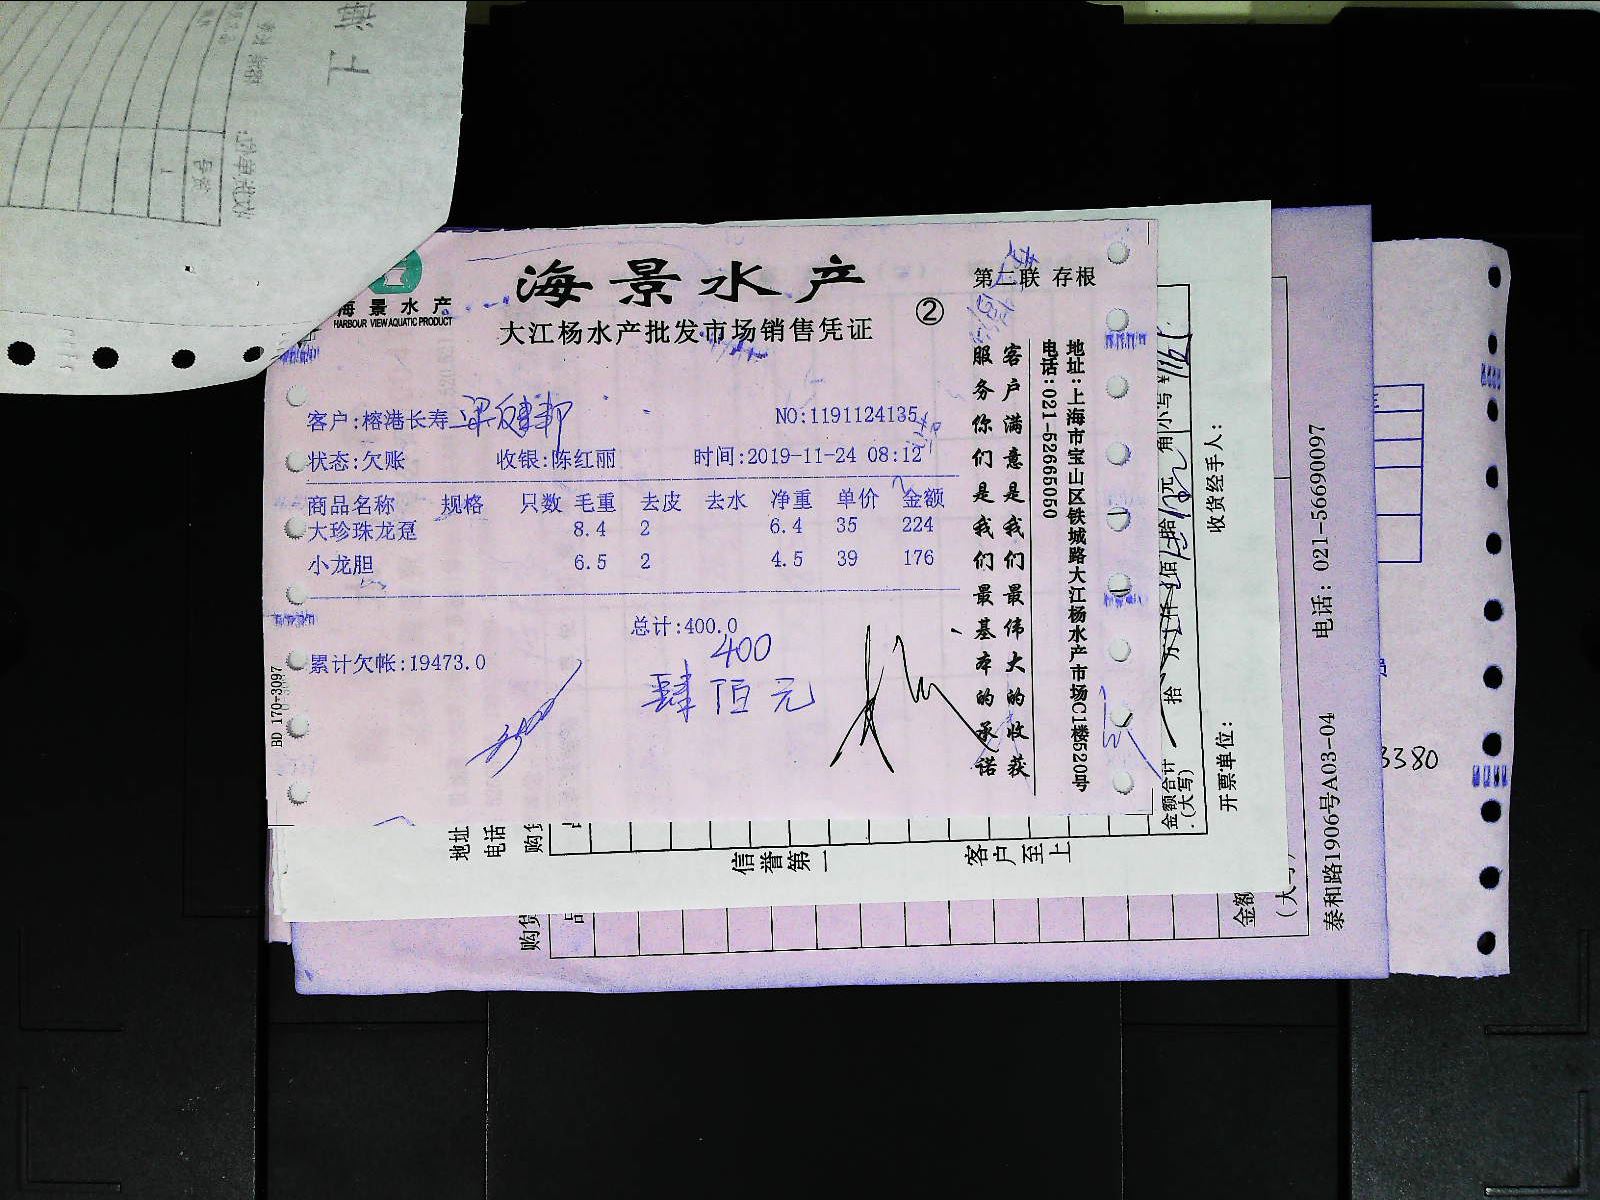 海景水产
HARBOUR VIEW AQUATIC PRODUCT
海景水产
大江杨水产批发市场销售凭证
②
第二联 存根
客户:榕港长寿
NO:1191124135
状态:欠账 收银:陈红丽 时间:2019-11-24 08:12
商品名称 规格 只数 毛重 去皮 去水 净重 单价 金额
大珍珠龙趸 8.4 2 6.4 35 224
小龙胆 6.5 2 4.5 39 176
总计:400.0
400
累计欠帐:19473.0
肆佰元
BD 170-3097
客户满意是我们最伟大的收获
服务你们是我们最基本的承诺
地址:上海市宝山区铁城路大江杨水产市场C1楼520号
电话:021-52665050
地址
电话
购货
信誉第一
客户至上
金额合计
(大写)
拾
小写¥
收货经手人:
开票单位:
购货
品
金额
(大写)
泰和路1906号A03-04 电话: 021-56690097
3380